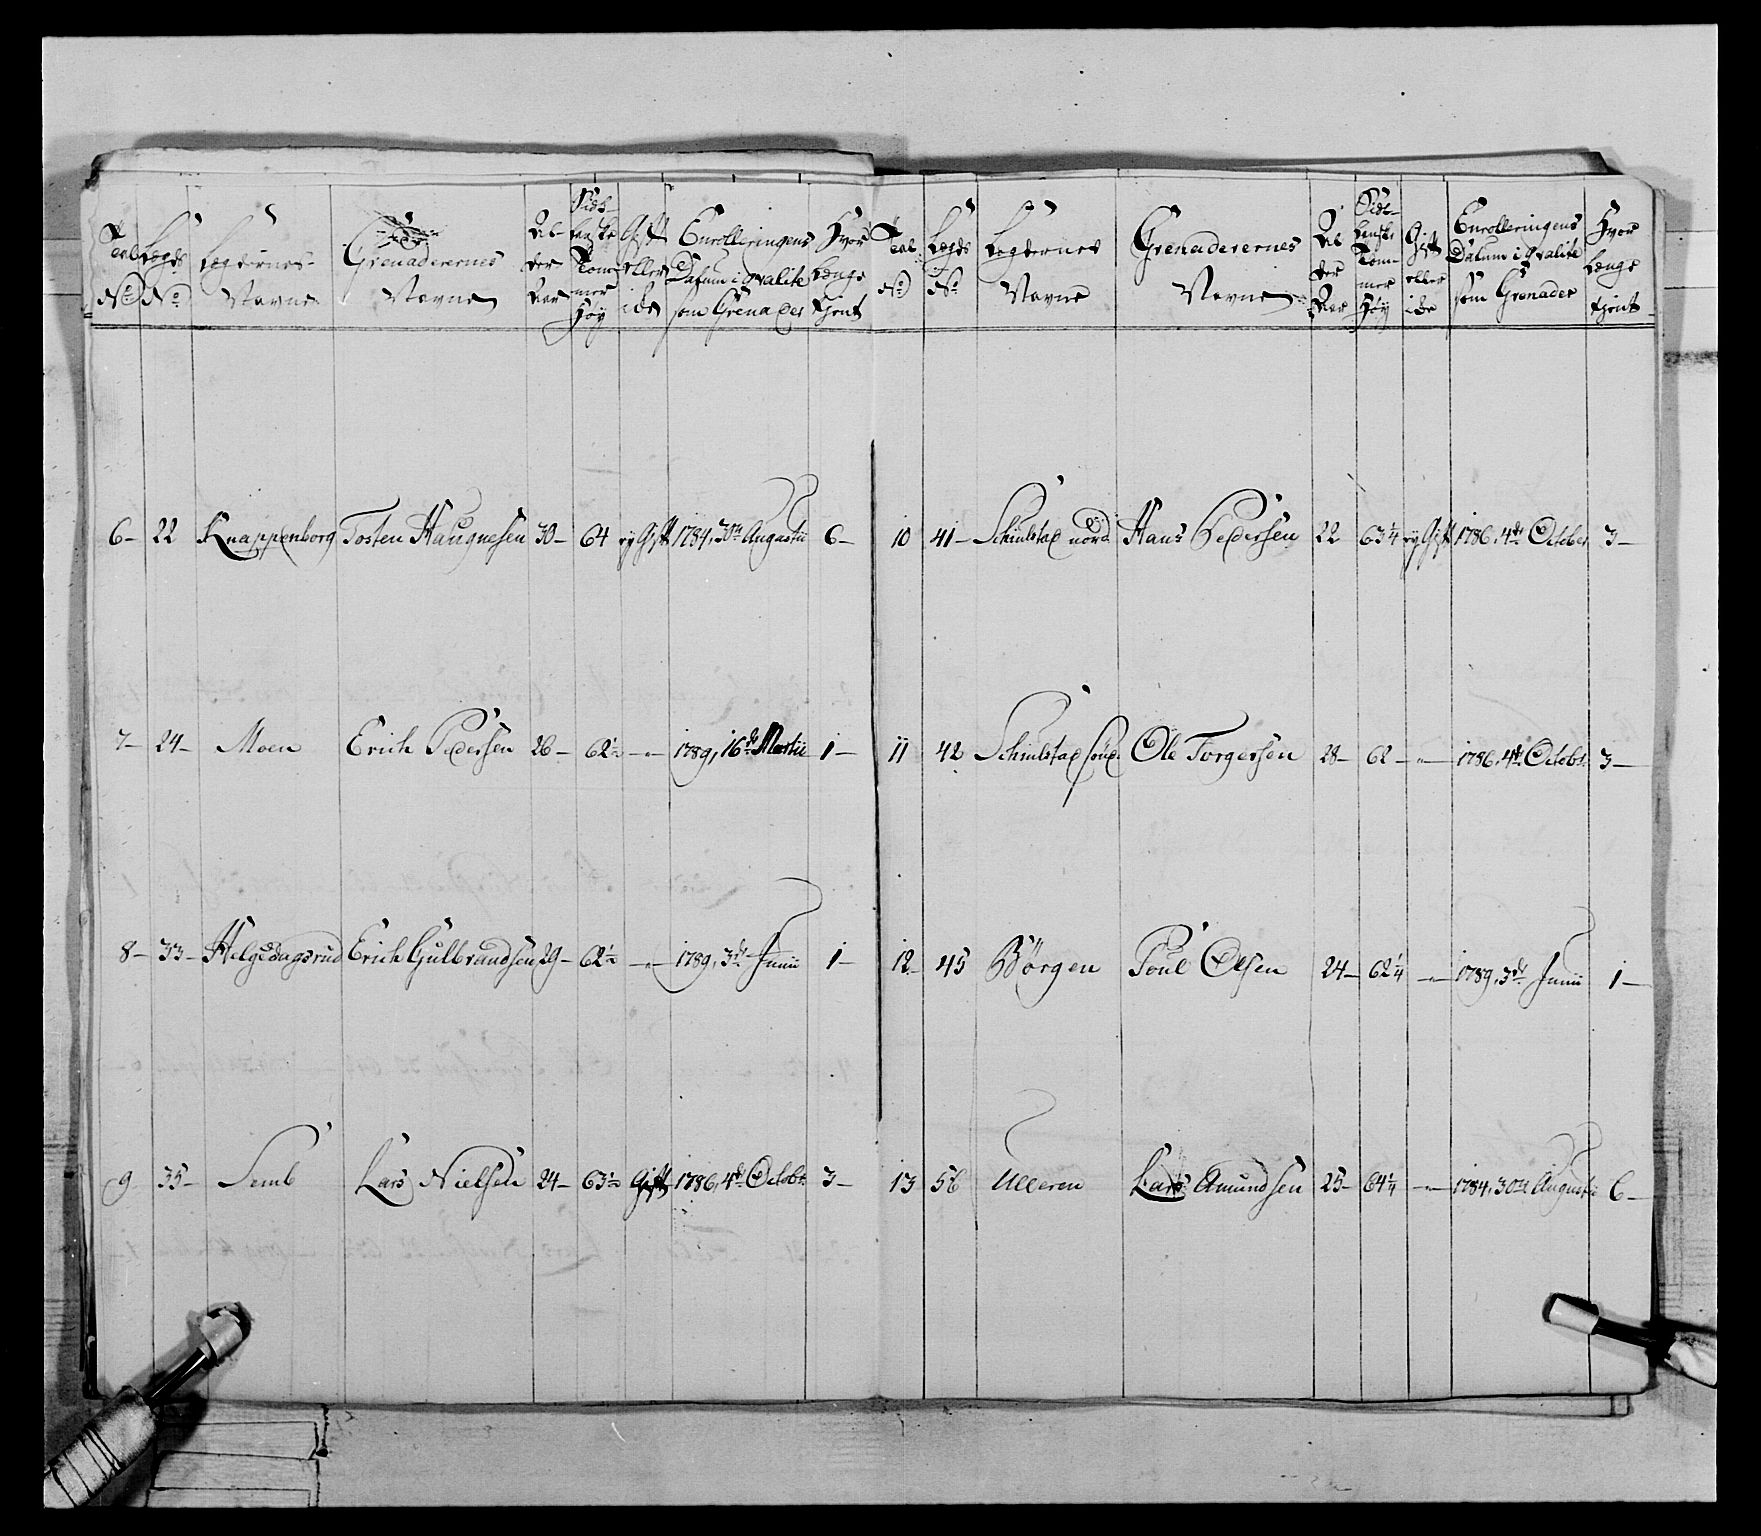 Taal No
Legds No
Legdernes Navne
Grenaderernes Navne
Alder Aar
Sidlandske Tommer Høy
Gift eller ide
Enrolleringens Datum i Qvalite som Grenader
Hvor Længe tjent
6 22 Knappenborg Tosten Haugnesen 30 64 ey Gift 1784, 30te Augustii 6
7 24 Moen Erich Pedersen 26 62½ " 1789, 16de Martii 1
8 33 Helgedagsrud Erich Gulbrandsen 29 62½ " 1789, 3de Junii 1
9 35 Semb Lars Nielsen 24 63½ Gift 1786, 4de Octobr. 3
Taal No
Legds No
Legdernes Navne
Grenaderernes Navne
Alder Aar
Tommer Høy
Gift eller ide
Enrolleringens Datum i Qvalite som Grenader
Hvor Længe tjent
10 41 Schiulstad nord Hans Pedersen 22 63¼ ey Gift 1786, 4de October 3
11 42 Schiulstad sønd. Ole Torgersen 28 62 " 1786, 4de Octobr. 3
12 45 Børgen Poul Olsen 24 62¼ " 1789, 3de Junii 1
13 56 Ulleren Lars Amundsen 25 64¼ " 1784, 30te Augustii 6